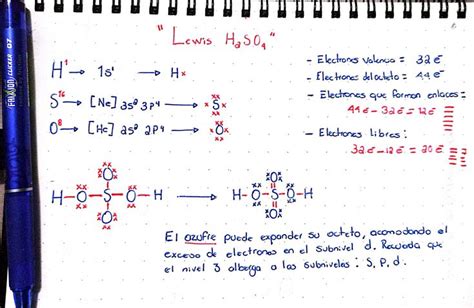 "Lewis H₂SO₄"
H¹ → 1s¹ → H×
S¹⁶ → [Ne] 3s² 3p⁴ → S
O⁸ → [He] 2s² 2p⁴ → O
- Electrones valencia = 32é
- Electrones del octeto = 44é
- Electrones que forman enlaces:
44é - 32é = 12é
- Electrones libres:
32é - 12é = 20é
O O
H-O-S-O-H → H-O-S-O-H
O O
El azufre puede expander su octeto, acomodando el
exceso de electrones en el subnivel d. Recuerda que
el nivel 3 alberga a los subniveles: s, p, d.
FRIXION CLICKER 0.7